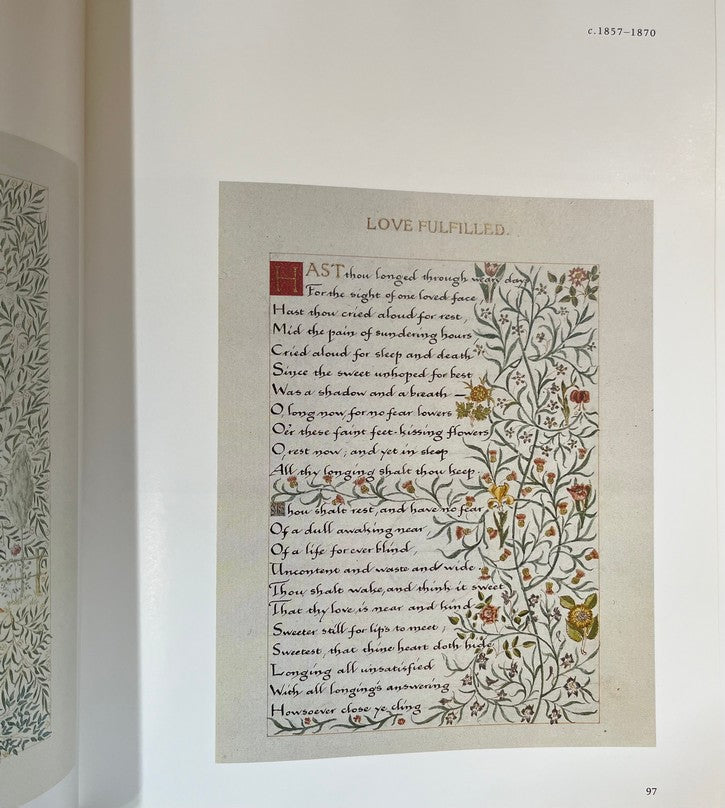 c.1857–1870
LOVE FULFILLED.
HAST thou longed through weary days
For the sight of one loved face
Hast thou cried aloud for rest,
Mid the pain of sundering hours
Cried aloud for sleep and death
Since the sweet unhoped for best
Was a shadow and a breath —
O, long now for no fear lowers
O'er these faint feet-kissing flowers
O, rest now; and yet in sleep
All thy longing shalt thou keep.
Thou shalt rest, and have no fear
Of a dull awaking near,
Of a life for ever blind,
Uncontent and waste and wide.
Thou shalt wake, and think it sweet
That thy love is near and kind
Sweeter still for lips to meet;
Sweetest, that thine heart doth hide
Longing all unsatisfied
With all longing's answering
Howsoever close ye cling
97